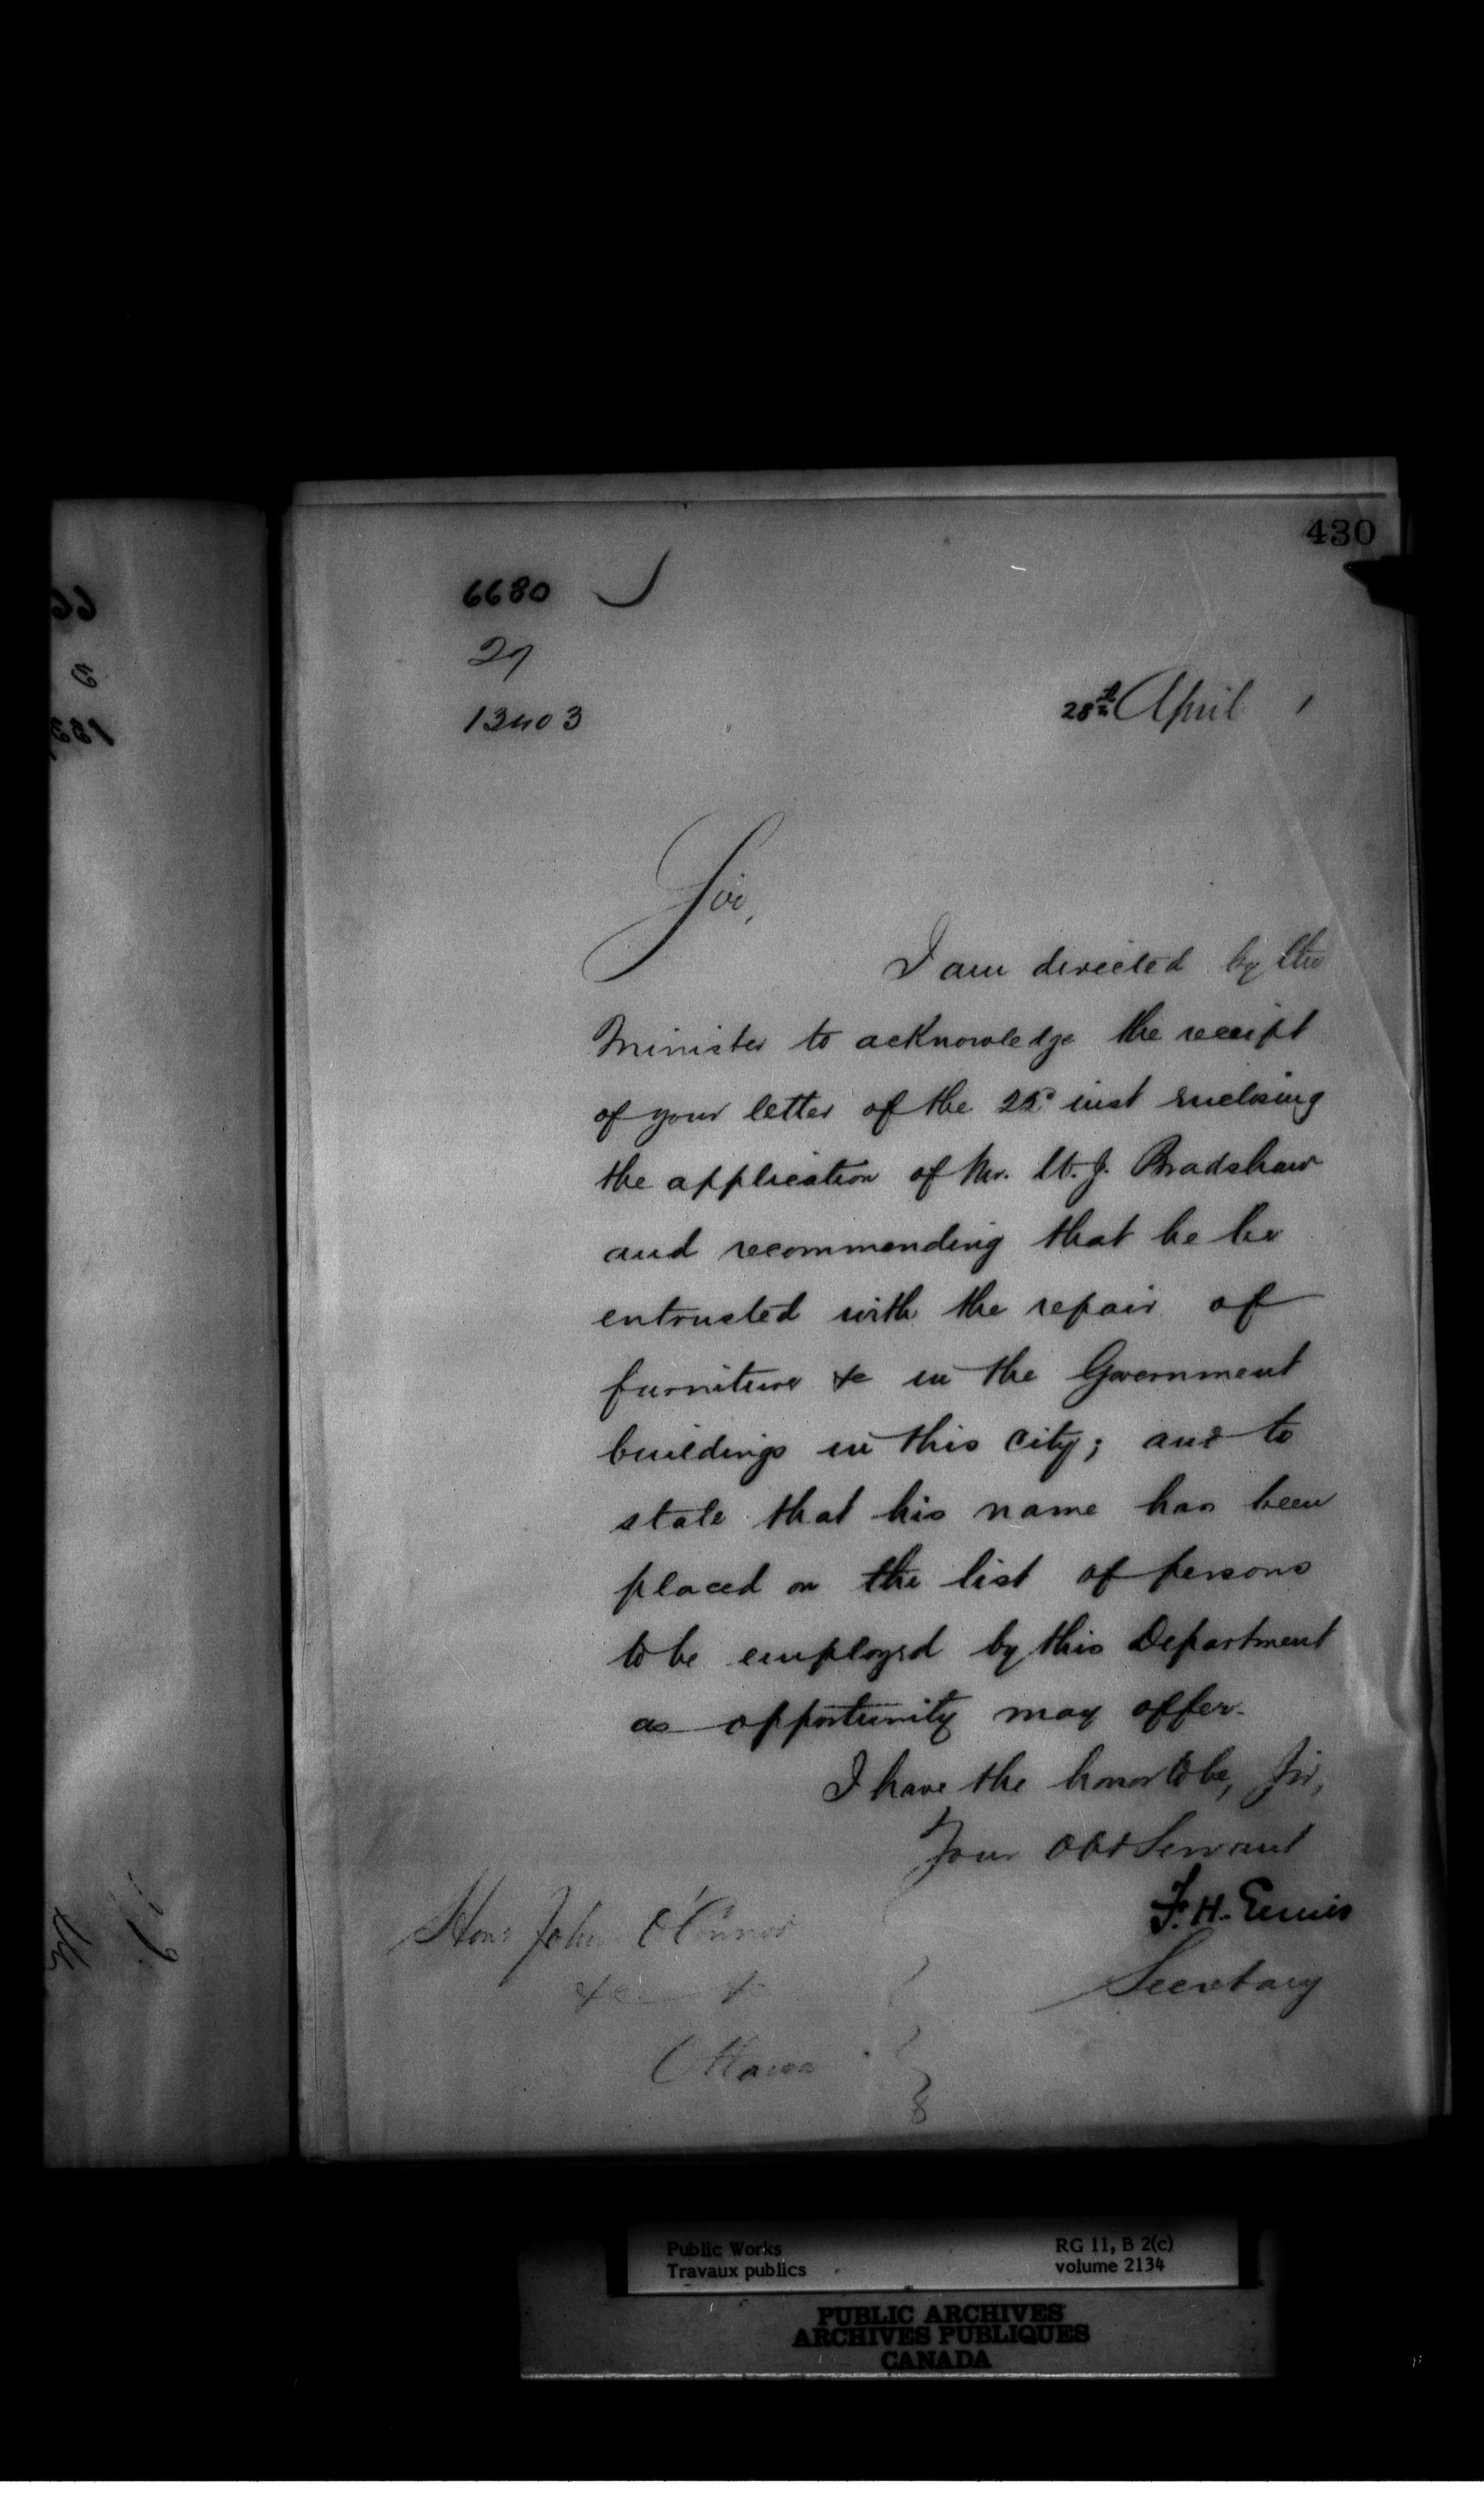 430
6680
27
13403
28th April 1
Sir,
I am directed by the
Minister to acknowledge the receipt
of your letter of the inst enclosing
the application of Mr. J. Bradshaw
and recommending that he be
entrusted with the repair of
furniture &c in the Government
buildings in this city; and to
state that his name has been
placed on the list of persons
to be employed by this Department
as opportunity may offer.
I have the honor to be, Sir,
Your Obt Servant
F. H. Ennis
Secretary
Hon. John O'Connor
&c
Ottawa
Public Works
Travaux publics
RG 11, B 2(c)
volume 2134
PUBLIC ARCHIVES
ARCHIVES PUBLIQUES
CANADA